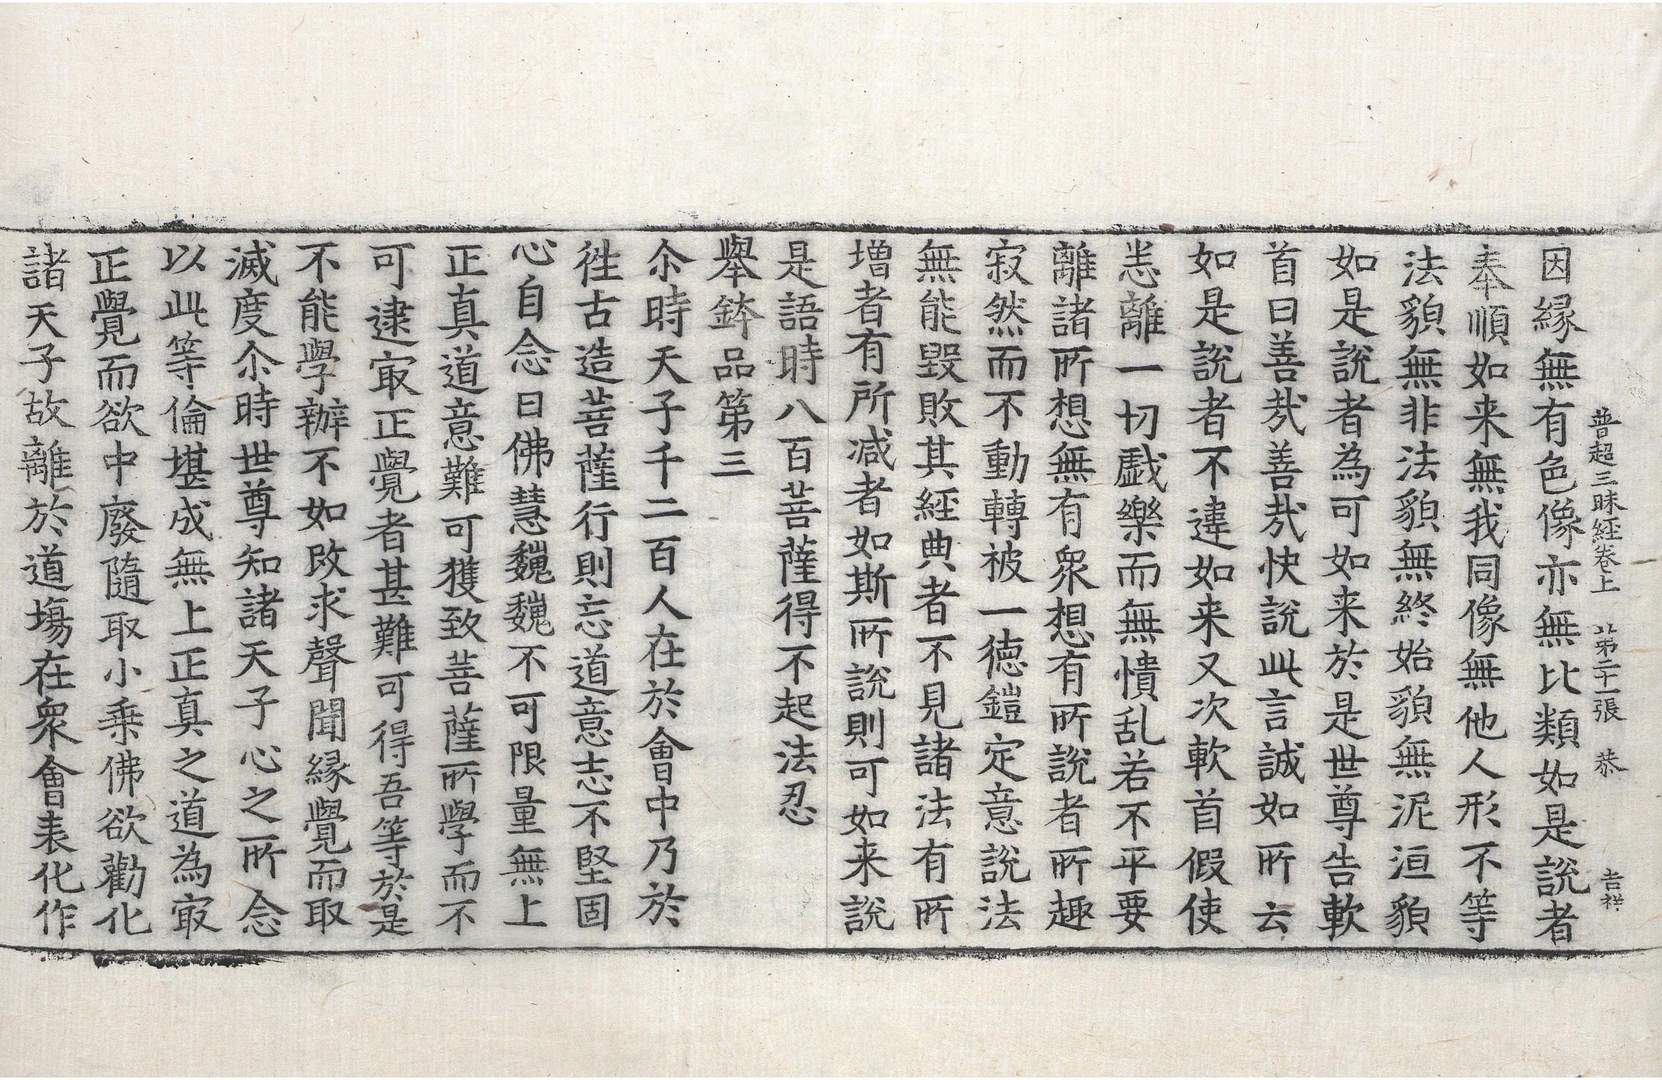 普超三昧経卷上 苐二十一張 恭 吉祥
因縁無有色像亦無比類如是說者
奉順如来無我同像無他人形不等
法貌無非法貌無終始貌無泥洹貌
如是說者為可如来於是世尊告軟
首曰善㢤善㢤快說此言誠如所云
如是說者不違如来又次軟首假使
恙離一切戱樂而無憒乱若不平要
離諸所想無有衆想有所說者所趣
寂然而不動轉被一德鎧定意說法
無能毀敗其經典者不見諸法有所
増者有所减者如斯所說則可如来說
是語時八百菩薩得不起法忍
舉鉢品第三
尒時天子千二百人在於會中乃於
徃古造菩薩行則忘道意志不堅固
心自念曰佛慧巍巍不可限量無上
正真道意難可獲致菩薩所學而不
可逮㝡正覺者甚難可得吾等於是
不能學辦不如改求聲聞縁覺而取
滅度尒時世尊知諸天子心之所念
以此等倫堪成無上正真之道為㝡
正覺而欲中廢隨取小乗佛欲勸化
諸天子故離於道塲在衆會表化作